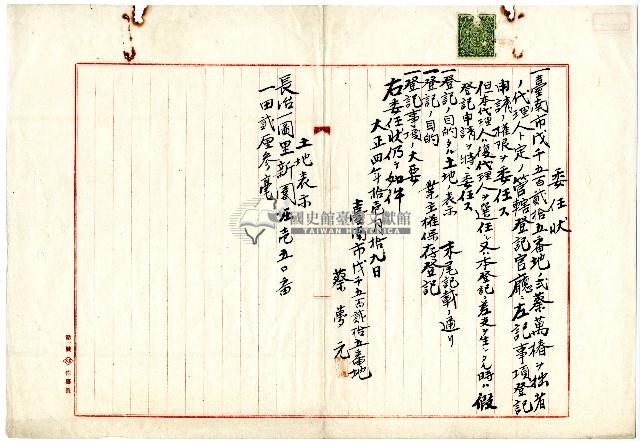 委任状
一臺南市戊千五百貳拾五番地ノ弐蔡萬椿ヲ拙者
ノ代理人ト定メ管轄登記官廳ニ左記事項登記
申請ノ權限ヲ委任ス
但本代理人ハ復代理人ヲ選任シ又ハ本登記ニ差支ヲ生シタル時ハ假
登記申請ヲ特ニ委任ス
一登記ノ目的タル土地ノ表示 末尾記載ノ通リ
一登記ノ目的 業主權保存登記
一登記事項ノ大要
右委任状仍テ如件
大正四年拾壱月拾九日
臺南市戊千五百貳拾五番地
蔡夢元
土地表示
長治一圖里新園庄壱五〇番
一田貳厘参毫
國史館臺灣文獻館
TAIWAN HISTORICA